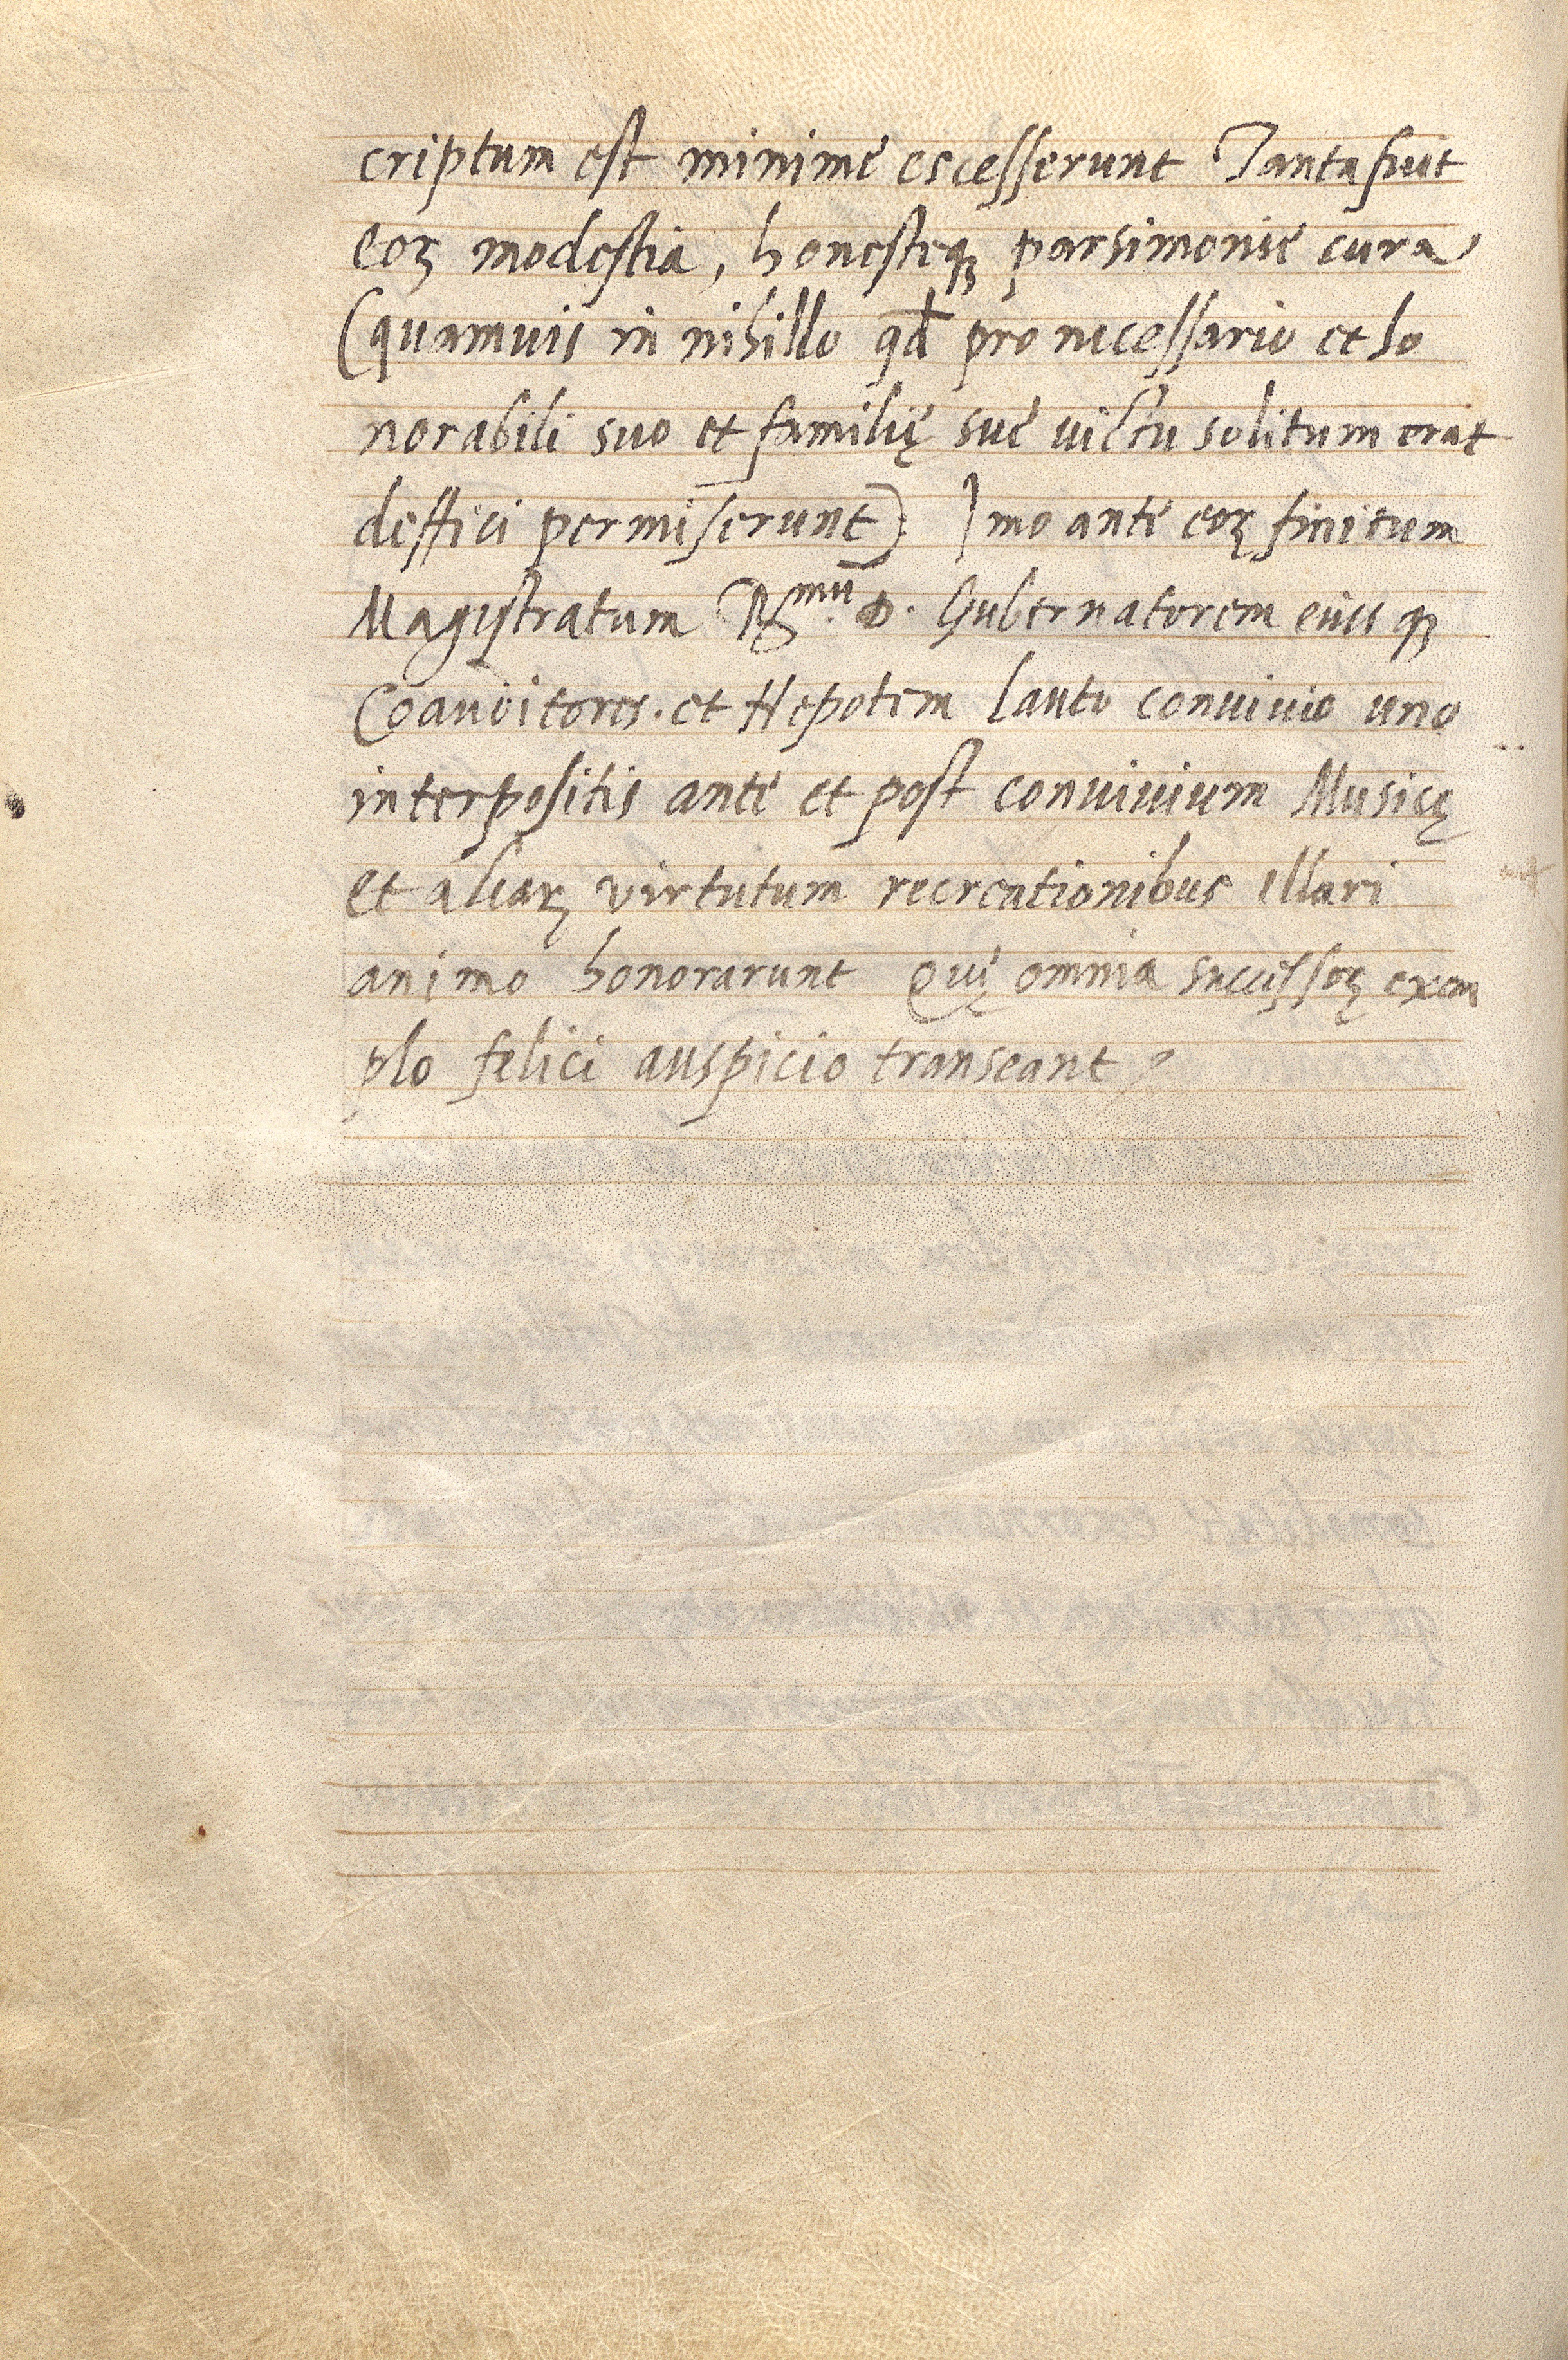 criptum est minime escesserunt Tanta fuit
eoꝝ modestia, honesteqꝫ parsimonie cura
(quamuis in nihillo qđ pro necessario et ho
norabili suo et familię sue victu solitum erat
deffici permiserunt). Imo ante eoꝝ finitum
Magistratum R.mũ D. Gubernatorem eiusqꝫ
Coauditores. et Nepotem lauto conuiuio uno
interpositis ante et post conuiuium Musicę
et aliaꝝ virtutum recreationibus illari
animo honorarunt Quę omnia successoꝝ exem
plo felici auspicio transeant